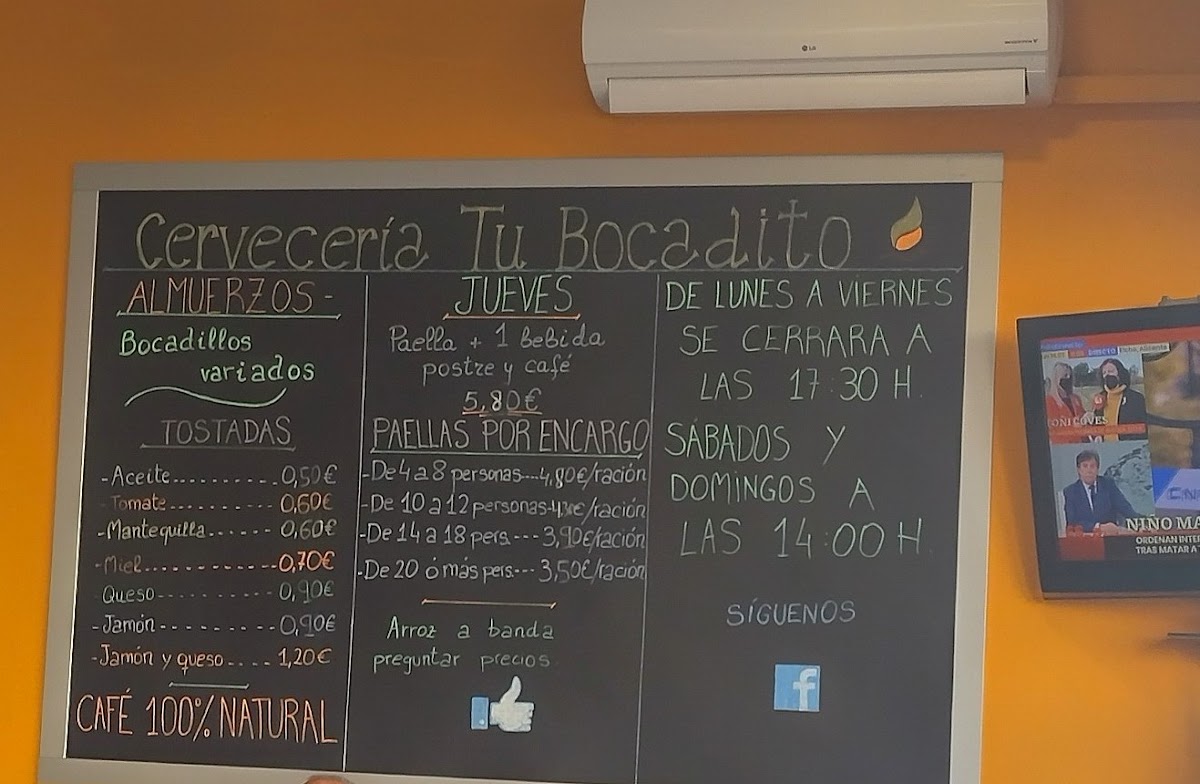 LG
Cervecería Tu Bocadito
ALMUERZOS-
Bocadillos
variados
TOSTADAS
-Aceite.......... 0,50€
-Tomate.......... 0,60€
-Mantequilla...... 0,60€
-Miel............ 0,70€
Queso---------- 0,90€
-Jamón---------- 0,90€
-Jamón y queso.... 1,20€
CAFÉ 100% NATURAL
JUEVES
Paella + 1 bebida
postre y café
5,80€
PAELLAS POR ENCARGO
-De 4 a 8 personas---4,80€/ración
-De 10 a 12 personas /ración
-De 14 a 18 pers.--- 3,90€/ración
-De 20 ó más pers--- 3,50€/ración
Arroz a banda
preguntar precios
DE LUNES A VIERNES
SE CERRARA A
LAS 17:30 H.
SÁBADOS Y
DOMINGOS A
LAS 14:00 H.
SÍGUENOS
f
DIRECTO Elche, Alicante
TOÑI COVES
NIÑO MA
ORDENAN INTER
TRAS MATAR A